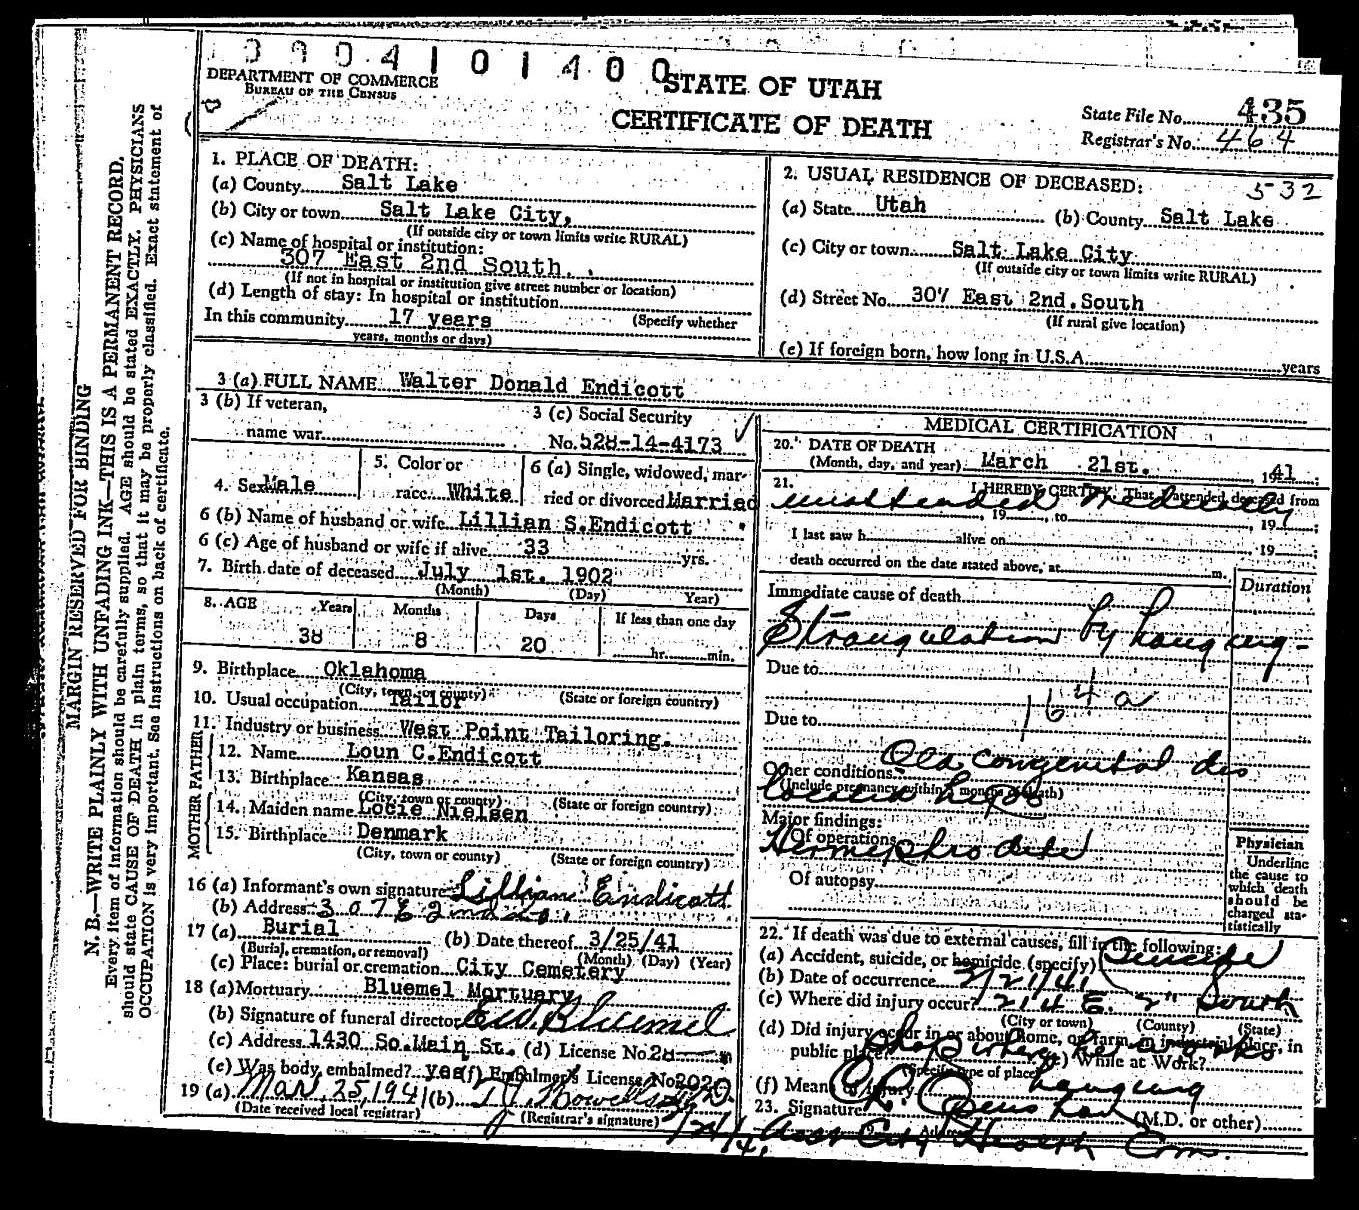 3904101400
DEPARTMENT OF COMMERCE
BUREAU OF THE CENSUS
STATE OF UTAH
CERTIFICATE OF DEATH
State File No. 435
Registrar's No. 464
MARGIN RESERVED FOR BINDING
N. B.—WRITE PLAINLY WITH UNFADING INK—THIS IS A PERMANENT RECORD.
Every item of information should be carefully supplied. AGE should be stated EXACTLY. PHYSICIANS
should state CAUSE OF DEATH in plain terms, so that it may be properly classified. Exact statement of
OCCUPATION is very important. See instructions on back of certificate.
1. PLACE OF DEATH:
(a) County Salt Lake
(b) City or town Salt Lake City,
(If outside city or town limits write RURAL)
(c) Name of hospital or institution:
307 East 2nd South.
(If not in hospital or institution give street number or location)
(d) Length of stay: In hospital or institution
In this community 17 years (Specify whether
years, months or days)
2. USUAL RESIDENCE OF DECEASED: 532
(a) State Utah (b) County Salt Lake
(c) City or town Salt Lake City
(If outside city or town limits write RURAL)
(d) Street No. 307 East 2nd. South
(If rural give location)
(e) If foreign born, how long in U.S.A. years
3 (a) FULL NAME Walter Donald Endicott
3 (b) If veteran,
name war
3 (c) Social Security
No. 528-14-4173
4. Sex Male
5. Color or
race White
6 (a) Single, widowed, mar-
ried or divorced Married
6 (b) Name of husband or wife Lillian S.Endicott
6 (c) Age of husband or wife if alive 33 yrs.
7. Birth date of deceased July 1st. 1902
(Month) (Day) Year)
8. AGE Years Months Days If less than one day
38 8 20 hr. min.
9. Birthplace Oklahoma
(City, town or county) (State or foreign country)
10. Usual occupation Tailor
11. Industry or business West Point Tailoring.
FATHER
12. Name Loun C.Endicott
13. Birthplace Kansas
(City, town or county) (State or foreign country)
MOTHER
14. Maiden name Locie Nielsen
15. Birthplace Denmark
(City, town or county) (State or foreign country)
16 (a) Informant's own signature Lillian Endicott
(b) Address 307 E 2nd So.
17 (a) Burial (b) Date thereof 3/25/41
(Burial, cremation, or removal) (Month) (Day) (Year)
(c) Place: burial or cremation City Cemetery
18 (a) Mortuary Bluemel Mortuary
(b) Signature of funeral director E.W. Bluemel
(c) Address 1430 So.Main St. (d) License No. 28
(e) Was body embalmed? yes (f) Embalmer's License No. 202
19 (a) Mar. 25, 1941 (b)
(Date received local registrar) (Registrar's signature)
MEDICAL CERTIFICATION
20. DATE OF DEATH
(Month, day, and year) March 21st. 1941
21. I HEREBY CERTIFY, That I attended deceased from
unattended medically
, 19 , to , 19 ;
I last saw h alive on , 19 ;
death occurred on the date stated above, at m.
Immediate cause of death Duration
Strangulation by hanging-
Due to
164a
Due to
Old congenital dis
Other conditions
(Include pregnancy within 3 months of death)
located hips
Major findings:
Of operations
Hermephrodite
Of autopsy
Physician
Underline
the cause to
which death
should be
charged sta-
tistically
22. If death was due to external causes, fill in the following:
(a) Accident, suicide, or homicide (specify) Suicide
(b) Date of occurrence 3/21/41
(c) Where did injury occur? 214 E. 2" South
(City or town) (County) (State)
(d) Did injury occur in or about home, on farm, in industrial place, in
public place? Shop where he works While at Work?
(Specify type of place)
(f) Means of injury hanging
23. Signature (M.D. or other)
Address
Asst City Health Com.